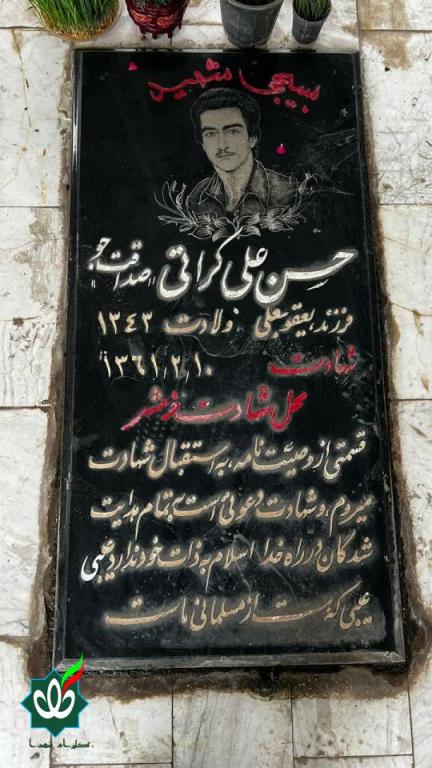 بسیجی شهید
حسن علی کراتی "صداقت جو"
فرزند: یعقوبعلی ولادت ۱۳۴۳
شهادت ۱۳۶۱٫۲٫۱۰
محل شهادت خرمشهر
قسمتی از وصیت نامه: به استقبال شهادت
میروم و شهادت دعوتی است به تمام هدایت
شدگان در راه خدا اسلام به ذات خود ندارد عیبی
عیبی که هست از مسلمانی ماست